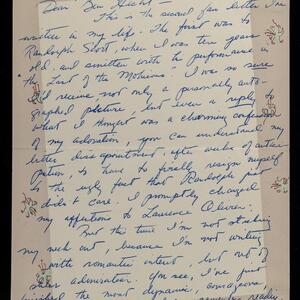 Dear Ben Hecht -
This is the second fan letter I've
written in my life. The first was to
Randolph Scott, when I was ten years
old and smitten with his performance in
"The Last of the Mohicans." I was so sure
I'd receive not only a personally auto-
graphed picture but even a reply to
what I thought was a charming confession
of my adoration, you can understand my
bitter disappointment, after weeks of antici-
pation, to have to finally resign myself
to the ugly fact that Randolph just
didn't care. I promptly changed
my affections to Laurence Olivier.
But this time I'm not sticking
my neck out, because I'm not writing
with romantic intent, but out of
sheer admiration. You see, I've just
finished the most dynamic, courageous